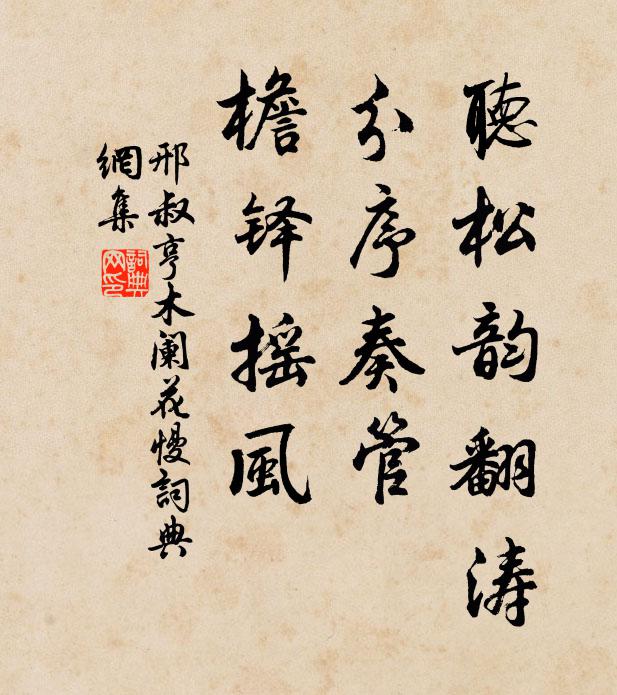 聽松韵翻涛
分序奏管
檐铎摇風
邢叔亨木阑花慢詞典
網集
詞典
网印